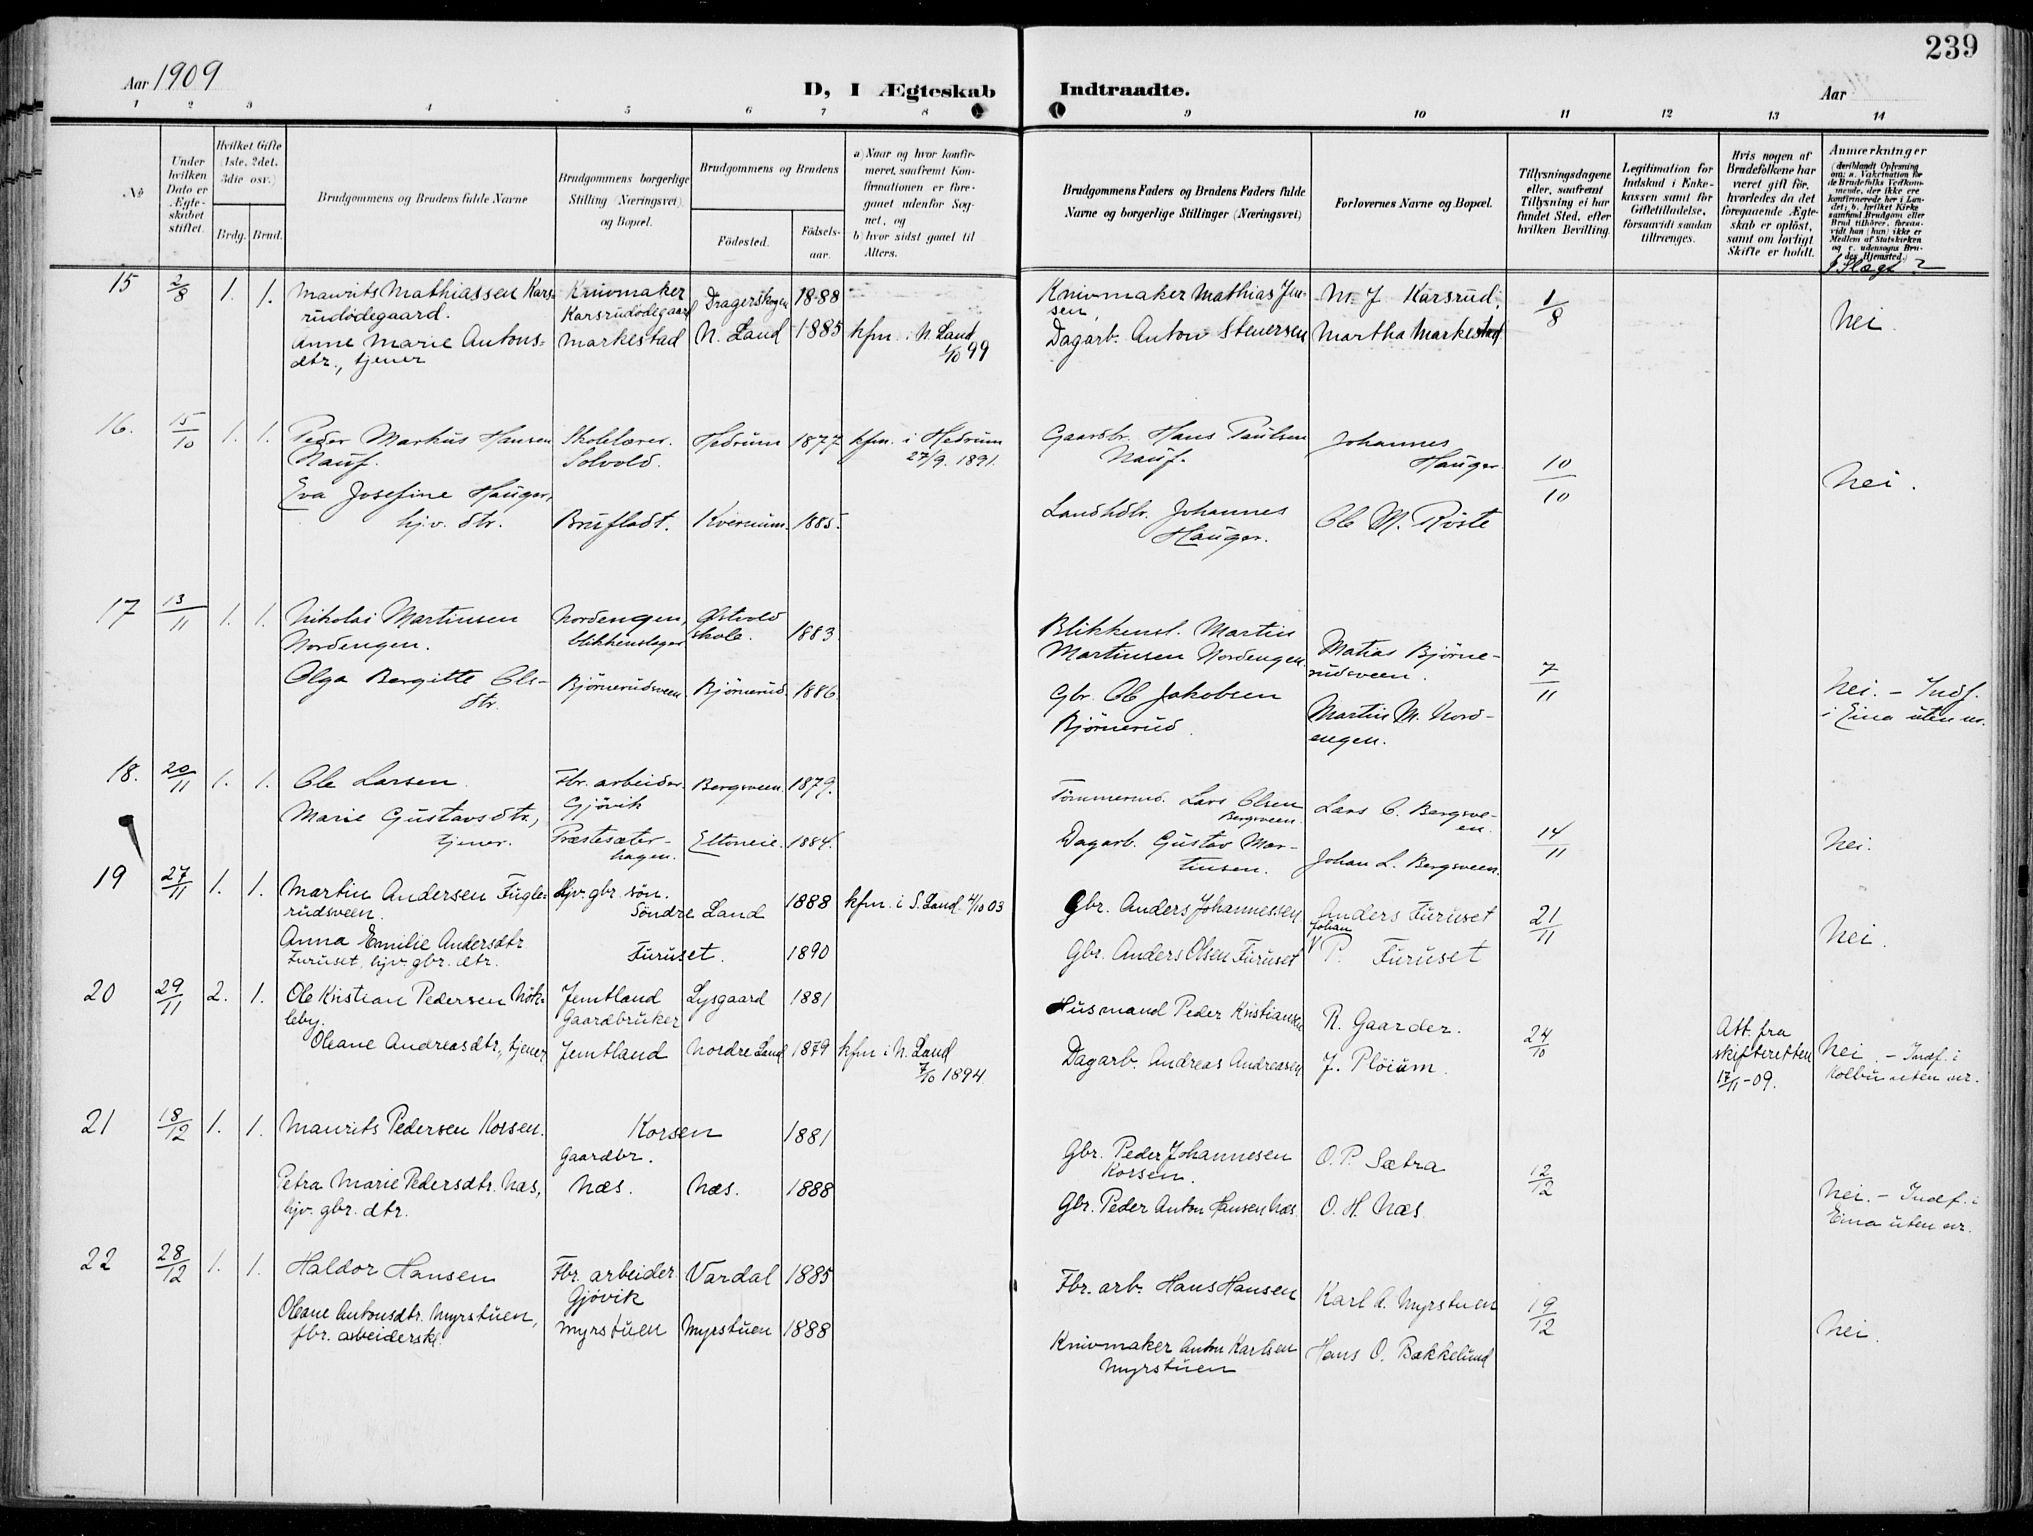 239
Aar 1909
D, I Ægteskab Indtraadte.
Aar
1 2 3 4 5 6 7 8 9 10 11 12 13 14
№
Under hvilken Dato er Ægteskabet stiftet.
Hvilket Gifte (1ste, 2det, 3die osv.)
Brdg. Brud.
Brudgommens og Brudens fulde Navne
Brudgommens borgerlige Stilling (Næringsvei) og Bopæl.
Brudgommens og Brudens
Födested.
Födselsaar.
a) Naar og hvor konfirmeret, saafremt Konfirmationen er foregaaet udenfor Sognet, og
b) hvor sidst gaaet til Alters.
Brudgommens Faders og Brudens Faders fulde Navne og borgerlige Stillinger (Næringsvei)
Forlovernes Navne og Bopæl.
Tillysningsdagene eller, saafremt Tillysning ei har fundet Sted, efter hvilken Bevilling.
Legitimation for Indskud i Enkekassen samt for Giftetilladelse, forsaavidt saadan tiltrænges.
Hvis nogen af Brudefolkene har været gift før, hvorledes da det foregaaende Ægteskab er opløst, samt om lovligt Skifte er holdt.
Anmærkninger
(deriblandt Oplysning om: a. Vakcination for de Brudefolks Vedkommende, der ikke ere konfirmerede her i Landet; b. hvilket Kirkesamfund Brudgom eller Brud tilhører, forsaavidt han (hun) ikke er Medlem af Statskirken og c. udensogns Brudes Hjemsted.)
i Slægt?
15 2/8 1. 1. Maurits Mathiassen Karsrudødegaard. Knivmaker Karsrudødegaard Dragerskogen 1888 Knivmaker Mathias Jensen, M. J. Karsrud. 1/8 Nei.
Anne Marie Antonsdtr., tjener Markestad N. Land 1885 kfm. i N. Land 1/10 99 Dagarb. Anton Stenersen Martha Markestad
16. 15/10 1. 1. Peder Markus Hansen Nauf. Skolelærer. Solvold. Hedrum 1877 kfm. i Hedrum 27/9. 1891. Gaardbr. Hans Paulsen Nauf. Johannes Hauger. 10/10 Nei.
Eva Josefine Hauger, hjv. dtr. Brufladt. Kvernum. 1885. Landhdlr. Johannes Hauger. Ole M. Röste
17 13/11 1. 1. Nikolai Martinsen Nordengen. Nordengen, blikkenslager Østvold skole. 1883 Blikkensl. Martin Martinsen Nordengen. Matias Bjørnerudsveen. 7/11
Olga Bergitte Olsdtr. Bjørnerudsveen Bjørnerud. 1886. Gbr. Ole Jakobsen Bjørnerud. Martin M. Nordengen. Nei. – Indf. i Eina uten nr.
18. 20/11 1. 1. Ole Larsen. Fbr. arbeider. Gjøvik Bergsveen. 1879. Tömmermd. Lars Olsen Bergsveen. Lars O. Bergsveen. 14/11 Nei.
Marie Gustavsdtr, tjener. Præstesæterhagen. Eltoneie. 1884. Dagarb. Gustav Martinsen. Johan L. Bergsveen.
19 27/11 1. 1. Martin Andersen Fuglerudsveen. Hjv. gbr. sön. Söndre Land 1888 kfm. i S. Land 4/10 03 Gbr. Anders Johannessen Anders Furuset 21/11 Nei.
Anna Emilie Andersdtr Furuset, hjv. gbr. dtr. Furuset. 1890 Gbr. Anders Olsen Furuset Johan P. Furuset
20 29/11 2. 1. Ole Kristian Pedersen Nökleby. Jemtland Gaardbruker Lysgaard 1881 Husmand Peder Kristiansen R. Gaarder. 24/10 Att. fra skifteretten 17/11–09.
Oleane Andreasdtr., tjener Jemtland Nordre Land 1879 kfm i N. Land 7/10 1894. Dagarb. Andreas Andreasen J. Plöium. Nei. – Indf. i Kolbu uten nr.
21 18/12 1. 1. Maurits Pedersen Korsen. Korsen Gaardbr. 1881 Gbr. Peder Johannesen Korsen. O. P. Sætra 12/12
Petra Marie Pedersdtr. Næs, hjv. gbr. dtr. Næs. Næs. 1888 Gbr. Peder Anton Hansen Næs. O. H. Næs. Nei. – Indf. i Eina uten nr.
22 28/12 1. 1. Haldor Hansen Fbr. arbeider Gjövik Vardal 1885 Fbr. arb. Hans Hansen Karl A. Myrstuen 19/12 Nei.
Oleane Antonsdtr. Myrstuen, fbr. arbeiderske. Myrstuen Myrstuen 1888 Knivmaker Anton Karlsen Myrstuen Hans O. Bakkelund